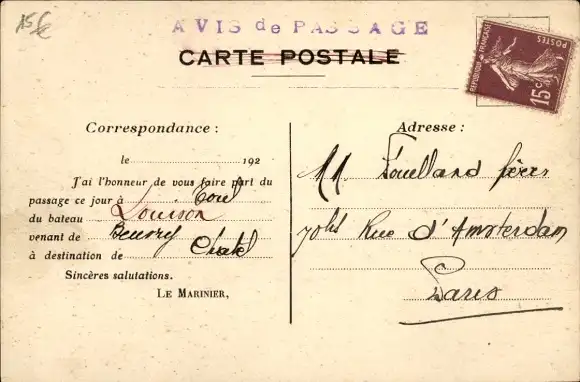 15€
AVIS de PASSAGE
CARTE POSTALE
POSTES
REPUBLIQUE FRANÇAISE
15c
Correspondance :
le 192
J'ai l'honneur de vous faire part du
passage ce jour à Toul
du bateau Louison
venant de Beuvry
à destination de Chatel
Sincères salutations.
LE MARINIER,
Adresse :
MM. Fouelland frères
Rue d'Amsterdam
Paris